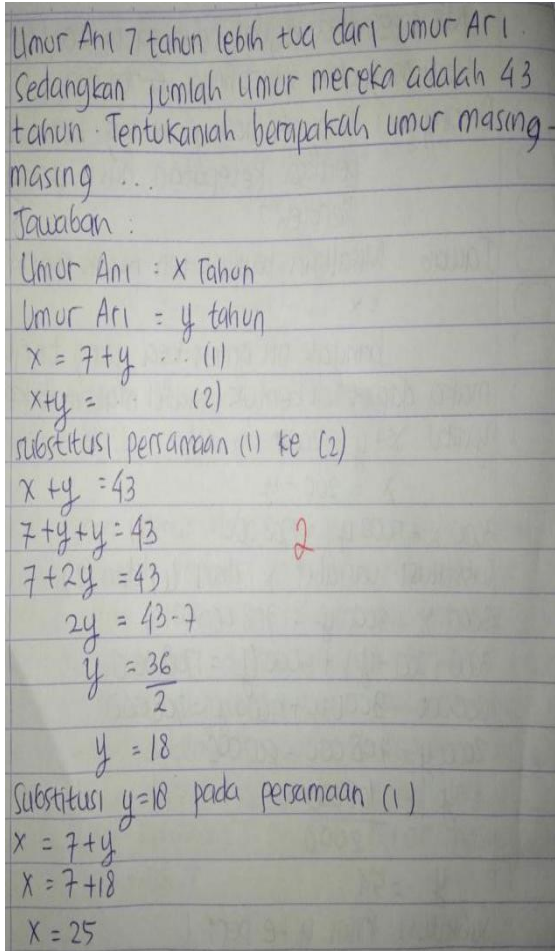 Umur Ani 7 tahun lebih tua dari umur Ari.
Sedangkan jumlah umur mereka adalah 43
tahun. Tentukanlah berapakah umur masing-
masing ...
Jawaban :
Umur Ani : x Tahun
Umur Ari = y tahun
x = 7+y ... (1)
x+y = (2)
substitusi persamaan (1) ke (2)
x + y = 43
7+y+y = 43
2
7+2y = 43
2y = 43-7
y = 36/2
y = 18
Substitusi y=18 pada persamaan (1)
x = 7+y
x = 7+18
x = 25